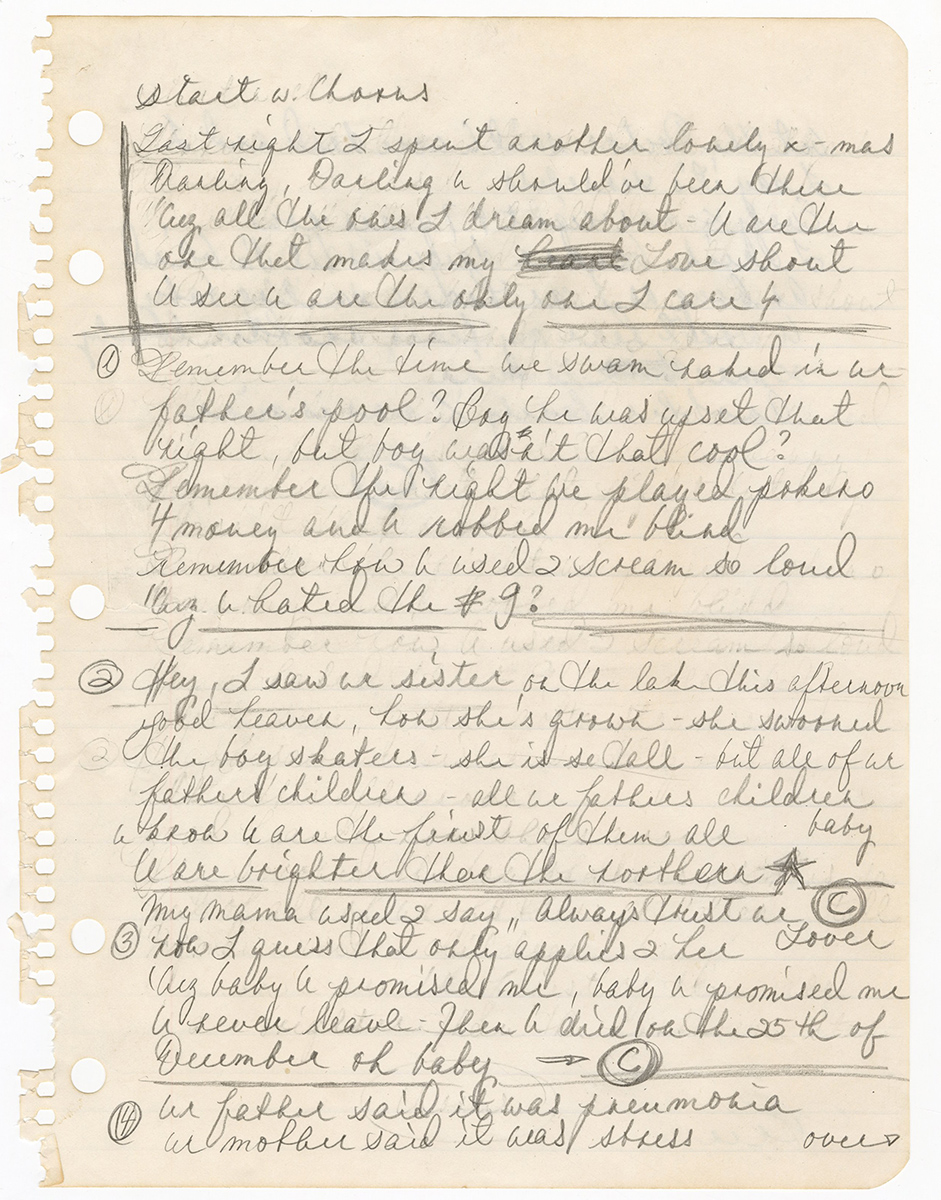 Start w. Chorus
Last night I spent another lonely x-mas
Darling, Darling U should've been there
'Cuz all the ones I dream about - U are the
one that makes my Love shout
U see U are the only one I care 4
① Remember the time we swam naked in ur
father's pool? Boy he was upset that
night, but boy wasn't that cool?
Remember the night we played pokeno
4 money and U robbed me blind
Remember how U used 2 scream so loud
'Cuz U hated the # 9?
② Hey, I saw ur sister on the lake this afternoon
good heaven, how she's grown - she swooned
the boy skaters - she is so tall - but all of ur
fathers children - all ur fathers children
U know U are the finest of them all baby
U are brighter than the northern ★
My mama used 2 say, "Always trust ur Ⓒ
③ now I guess that only applies 2 her Lover
'Cuz baby U promised me, baby U promised me
U never leave - Then U died on the 25th of
December oh baby → Ⓒ
④ ur father said it was pneumonia
ur mother said it was stress over→